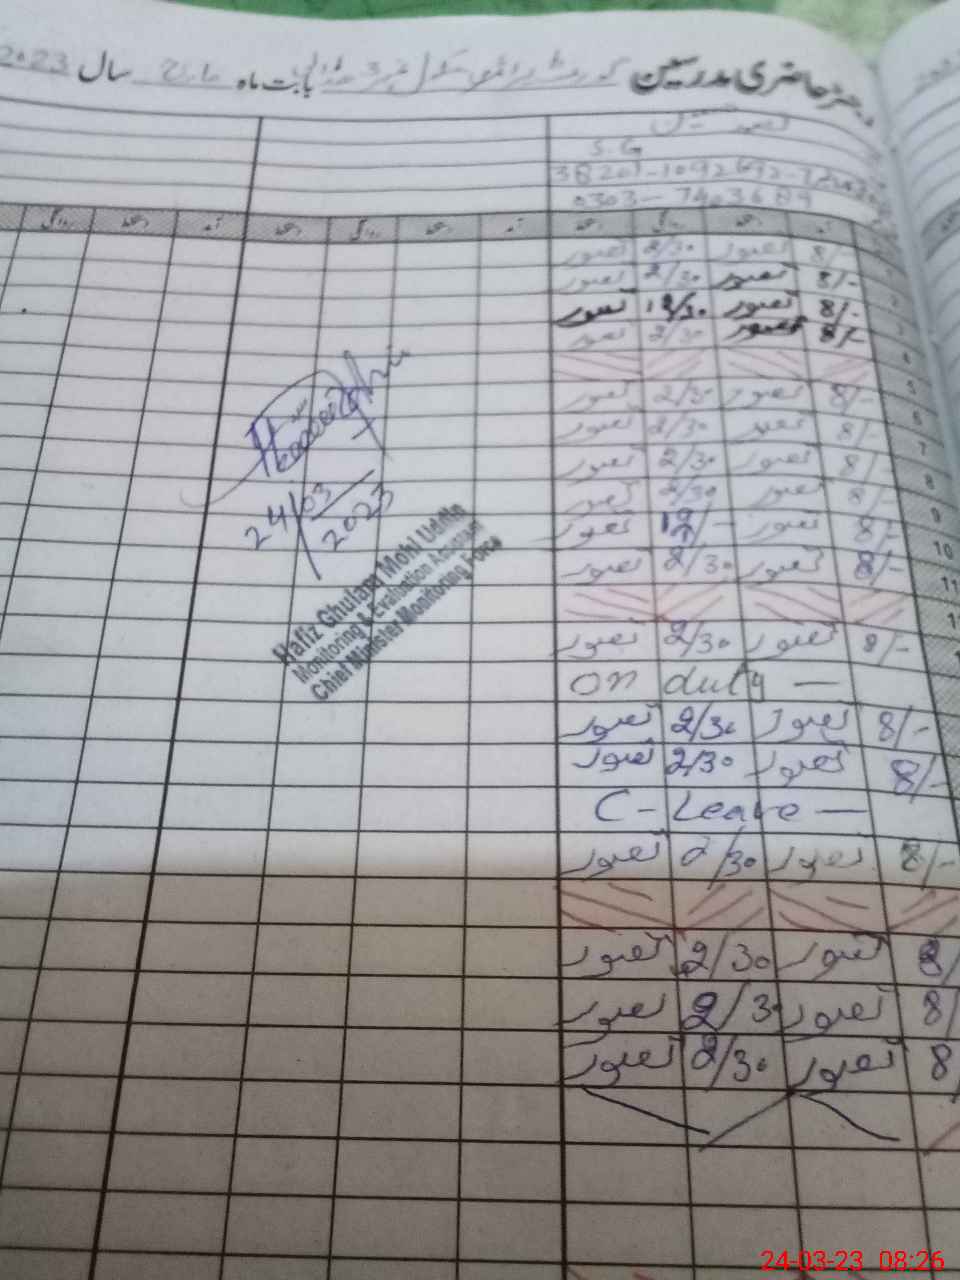 رجسٹر حاضری مدرسین گورنمنٹ پرائمری سکول نمبر 3 بابت ماہ مارچ سال 2023
S.G
0303-7403689
آمد دستخط روانگی دستخط آمد دستخط روانگی دستخط آمد دستخط روانگی
1 8/- تصور 2/30 تصور
2 8/- تصور 2/30 تصور
3 8/- تصور 12/30 تصور
4 8/- تصور 2/30 تصور
5
6 8/- تصور 2/30 تصور
7 8/- تصور 2/30 تصور
8 8/- تصور 2/30 تصور
9 8/- تصور 2/30 تصور
10 8/- تصور 12/- تصور
11 8/- تصور 2/30 تصور
8/- تصور 2/30 تصور
on duty —
8/- تصور 2/30 تصور
8/- تصور 2/30 تصور
C-Leave —
8/- تصور 2/30 تصور
8/ تصور 2/30 تصور
8/ تصور 2/30 تصور
8 تصور 2/30 تصور
24/03/2023
Hafiz Ghulam Mohi Uddin
Monitoring & Evaluation Assistant
Chief Minister Monitoring Force
24-03-23 08:26